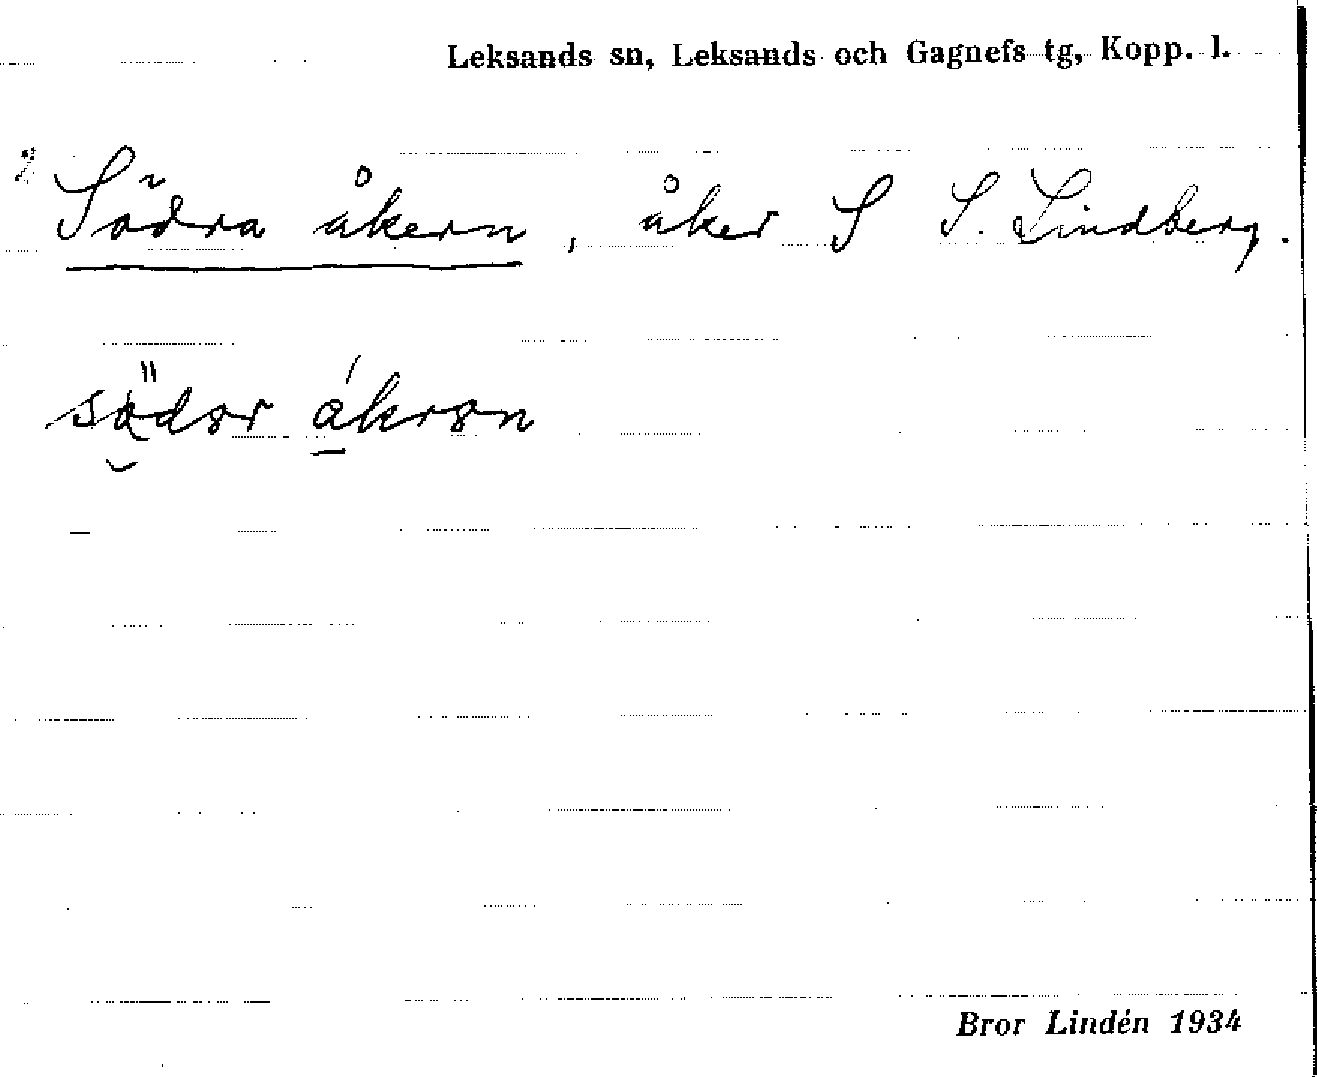 Leksands sn, Leksands och Gagnefs tg, Kopp. l.
2 Södra åkern, åker S S. Lindberg.
södər åkrən
Bror Lindén 1934